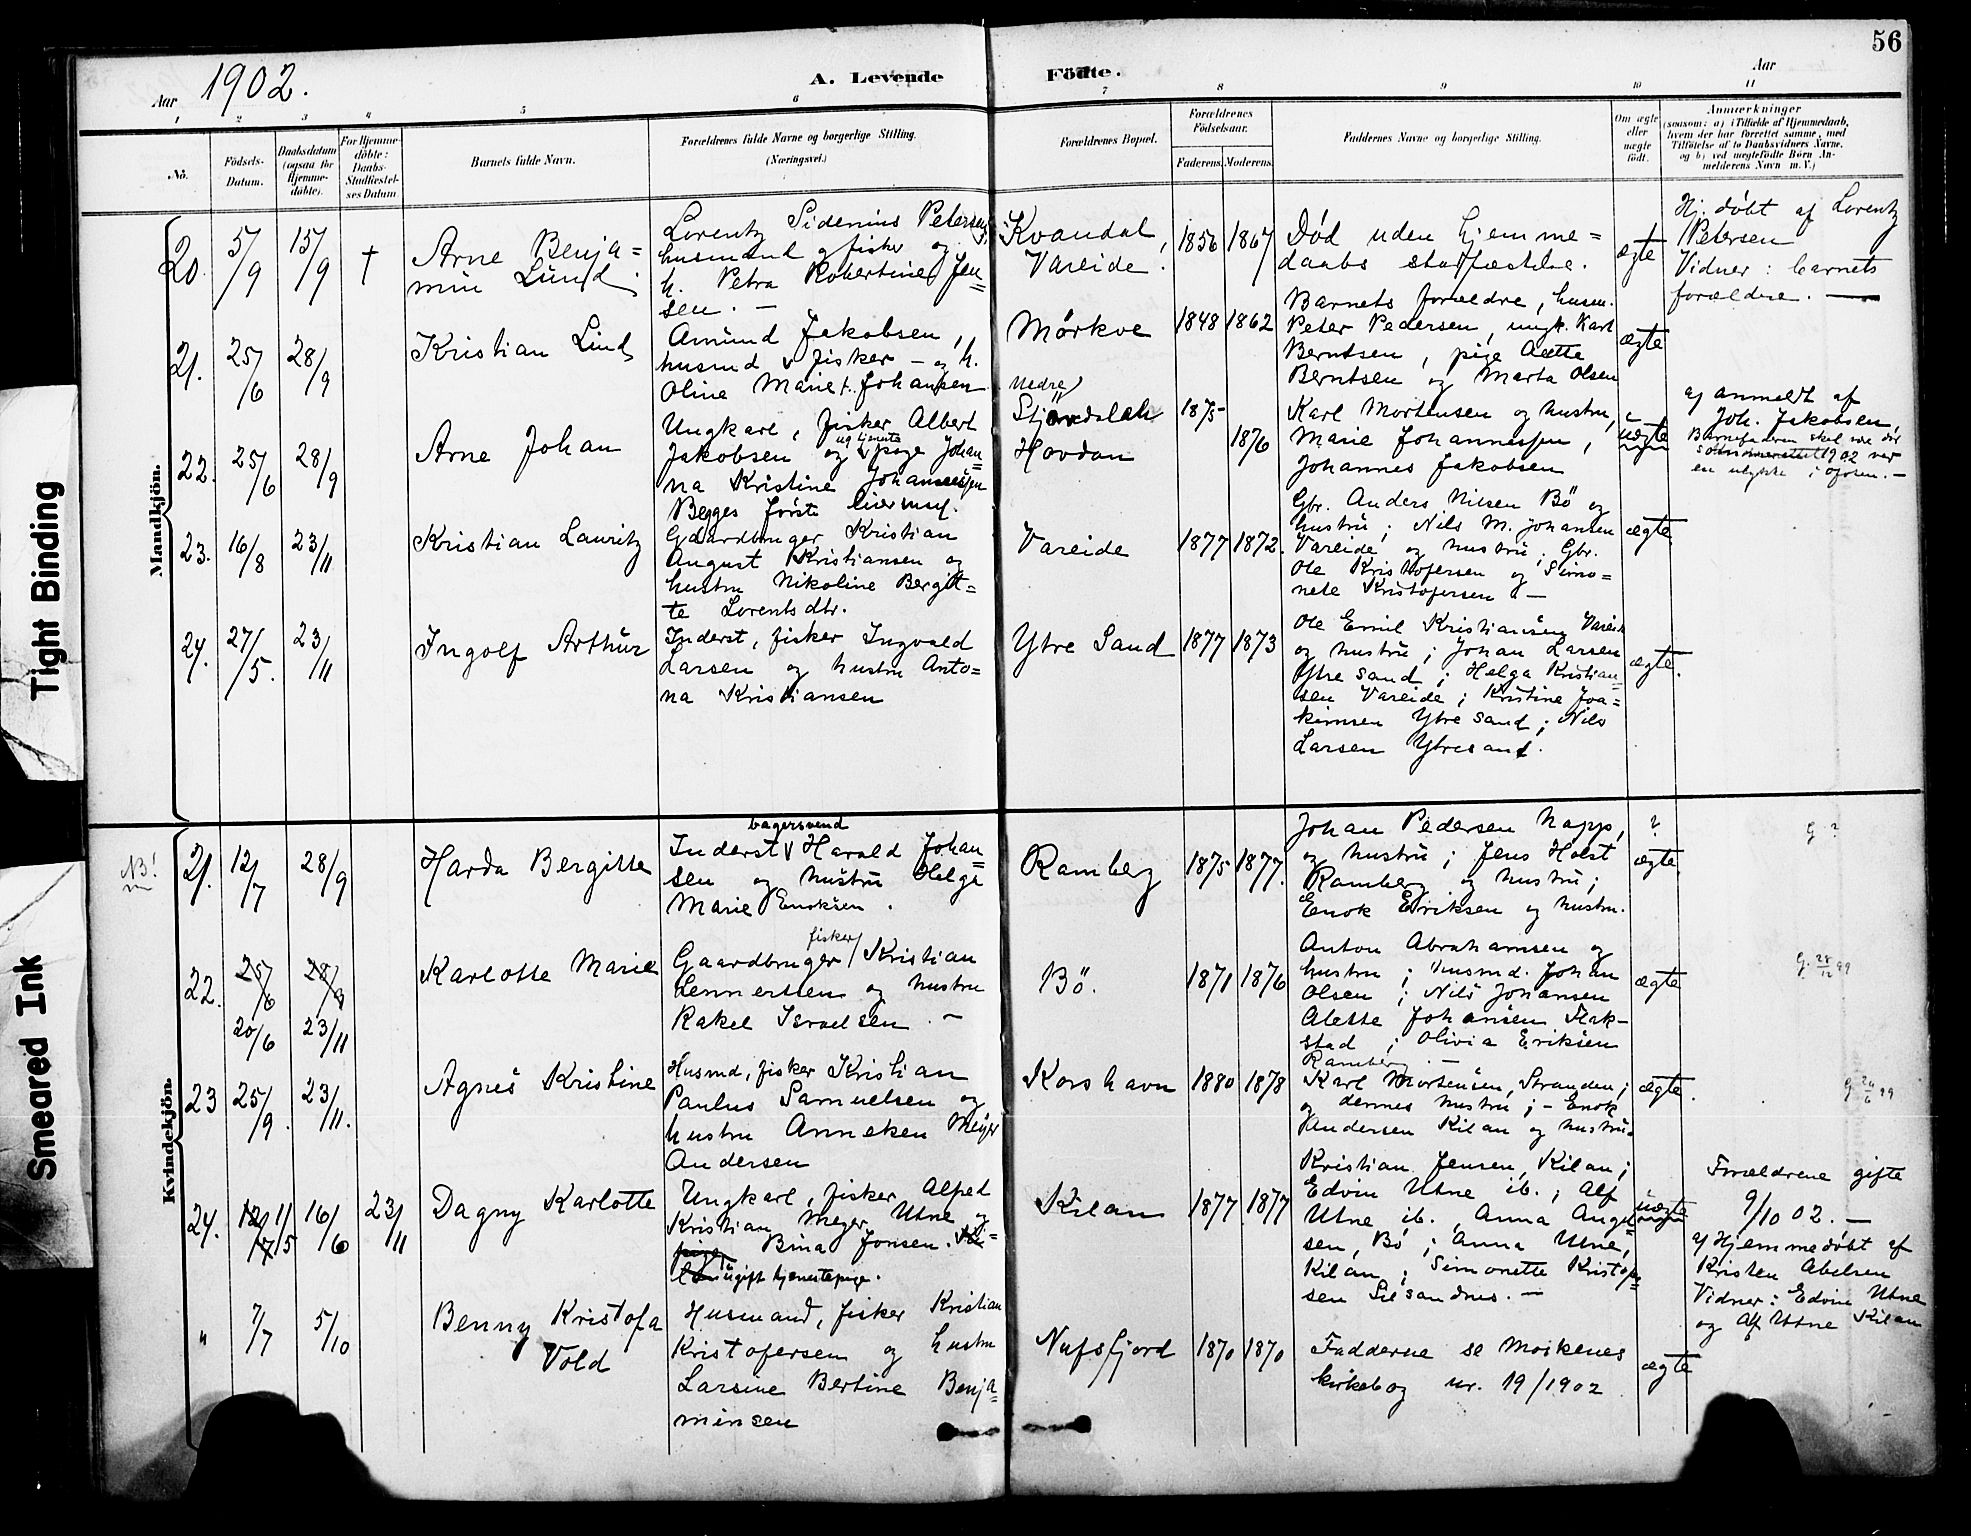 56
Aar 1902.
A. Levende Födte.
Aar
1 2 3 4 5 6 7 8 9 10 11
No.
Födsels-Datum.
Daabsdatum (ogsaa for Hjemmedöbte).
For Hjemmedöbte: Daabs-Stadfæstelses Datum
Barnets fulde Navn.
Forældrenes fulde Navne og borgerlige Stilling.
(Næringsvei.)
Forældrenes Bopæl.
Forældrenes Födselsaar.
Faderens. Moderens.
Faddernes Navne og borgerlige Stilling.
Om ægte eller uægte födt.
Anmærkninger
(saasom: a) i Tilfælde af Hjemmedaab,
hvem der har forrettet samme, med
Tilföielse af to Daabsvidners Navne,
og b) ved uægtefödte Börn An-
melderens Navn m. V.)
Mandkjön.
20. 5/9 15/9 †
Arne Benja=
min Lund
Lorentz Sidenius Petersen,
husmand og fisker og
h. Petra Robertine Jen=
sen. —
Kvandal,
Vareide.
1856 1867
Död uden hjemme=
daabs stadfæstelse.
ægte
Hj. döbt af Lorentz
Petersen
Vidner: barnets
forældre. —
21. 25/6 28/9
Kristian Lind
Amund Jakobsen,
husmd & fisker — og h.
Oline Marie f. Johansen
Mörkve
1848 1862
Barnets forældre, husm.
Peter Pedersen, ungk. Karl
Berntsen, pige Aette
Berntsen og Marta Olsen
ægte
22. 25/6 28/9
Arne Johan
Ungkarl, fisker Albert
Jakobsen og ug tjeneste pige Johan=
na Kristine Johannessen
Begges förste leiermaal.
Nedre
Hovdan
1875 1876
Karl Mortensen og hustru,
Marie Johannessen,
Johannes Jakobsen
uægte
a) anmeldt af
Joh. Jakobsen,
Barnefaderen skal være död
1902 ved
en ulykke i Ofoten. —
23. 16/8 23/11
Kristian Lauritz
Gaardbruger Kristian
August Kristiansen og
hustru Nikoline Bergit=
te Lorentsdtr.
Vareide
1877 1872.
Gbr. Anders Nilsen Bö og
hustru; Nils M. Johansen
Vareide og hustru; Gbr.
Ole Kristofersen og Simo=
nete Kristofersen —
ægte
24. 27/5. 23/11
Ingolf Arthur
Inderst, fisker Ingvald
Larsen og hustru Anto=
na Kristiansen
Ytre Sand
1877 1873
Ole Emil Kristiansen Vareid
og hustru; Johan Larsen
Ytre Sand; Helga Kristian=
sen Vareide; Kristine Joa=
kimsen Ytre sand; Nils
Larsen Ytresand.
ægte.
Kvindekjön.
NB!
21. 12/7 28/9
Harda Bergitte
bagersvend
Inderst Harald Johan=
sen og hustru Helga
Marie Enoksen.
Ramberg
1875 1877.
Johan Pedersen Napp,
og hustru; Jens Holst
Ramberg og hustru;
Enok Eriksen og hustru.
?
ægte.
G. ?
22. 25/6 28/9
20/6 23/11
Karlotte Marie
Gaardbruger fisker Kristian
Lennertsen og hustru
Rakel Israelsen. —
Bö.
1871 1876
Anton Abrahamsen og
hustru; husmd. Johan
Olsen; Nils Johansen
Alette Johansen Flak-
stad; Olivia Eriksen
Ramberg. —
ægte
G. 28/12 99
23 25/9. 23/11.
Agnes Kristine
Husmd, fisker Kristian
Paulus Samuelsen og
hustru Anneken Meyer
Andersen
Korshavn
1880 1878
Karl Mortensen, Stranden;
og dennes hustru; — Enok
Andersen Kilan og hustru.
ægte.
24. 12/7 11/5 16/6 23/11
Dagny Karlotte
Ungkarl, fisker Alfred
Kristian Meyer Utne og
Bina Jonsen.
ugift tjenestepige.
Kilan
1877 1877
Kristian Jensen, Kilan;
Edvin Utne ib.; Alf
Utne ib., Anna Angel=
sen, Bö; Anna Utne,
Kilan; Simonette Kristofe=
sen Silsandnes. —
uægte
Forældrene gifte
9/10 02. —
a) Hjemmedöbt af
Kristen Abelsen
Vidner: Edvin Utne
og Alf Utne Kilan
" 7/7 5/10
Benny Kristofa
Vold
Husmand, fisker Kristian
Kristofersen og hustru
Larsine Bertine Benja=
minsen
Nufsfjord
1870 1870
Fadderne se Moskenes
kirkebog nr. 19/1902
ægte
Tight Binding
Smeared Ink